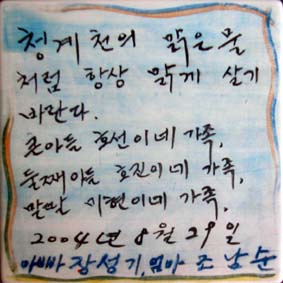 청계천의 맑은 물
처럼 항상 맑게 살기
바란다.
큰아들 호선이네 가족,
둘째아들 호진이네 가족,
막딸 이현이네 가족,
2004년 8월 29일
아빠 장성기, 엄마 조남순